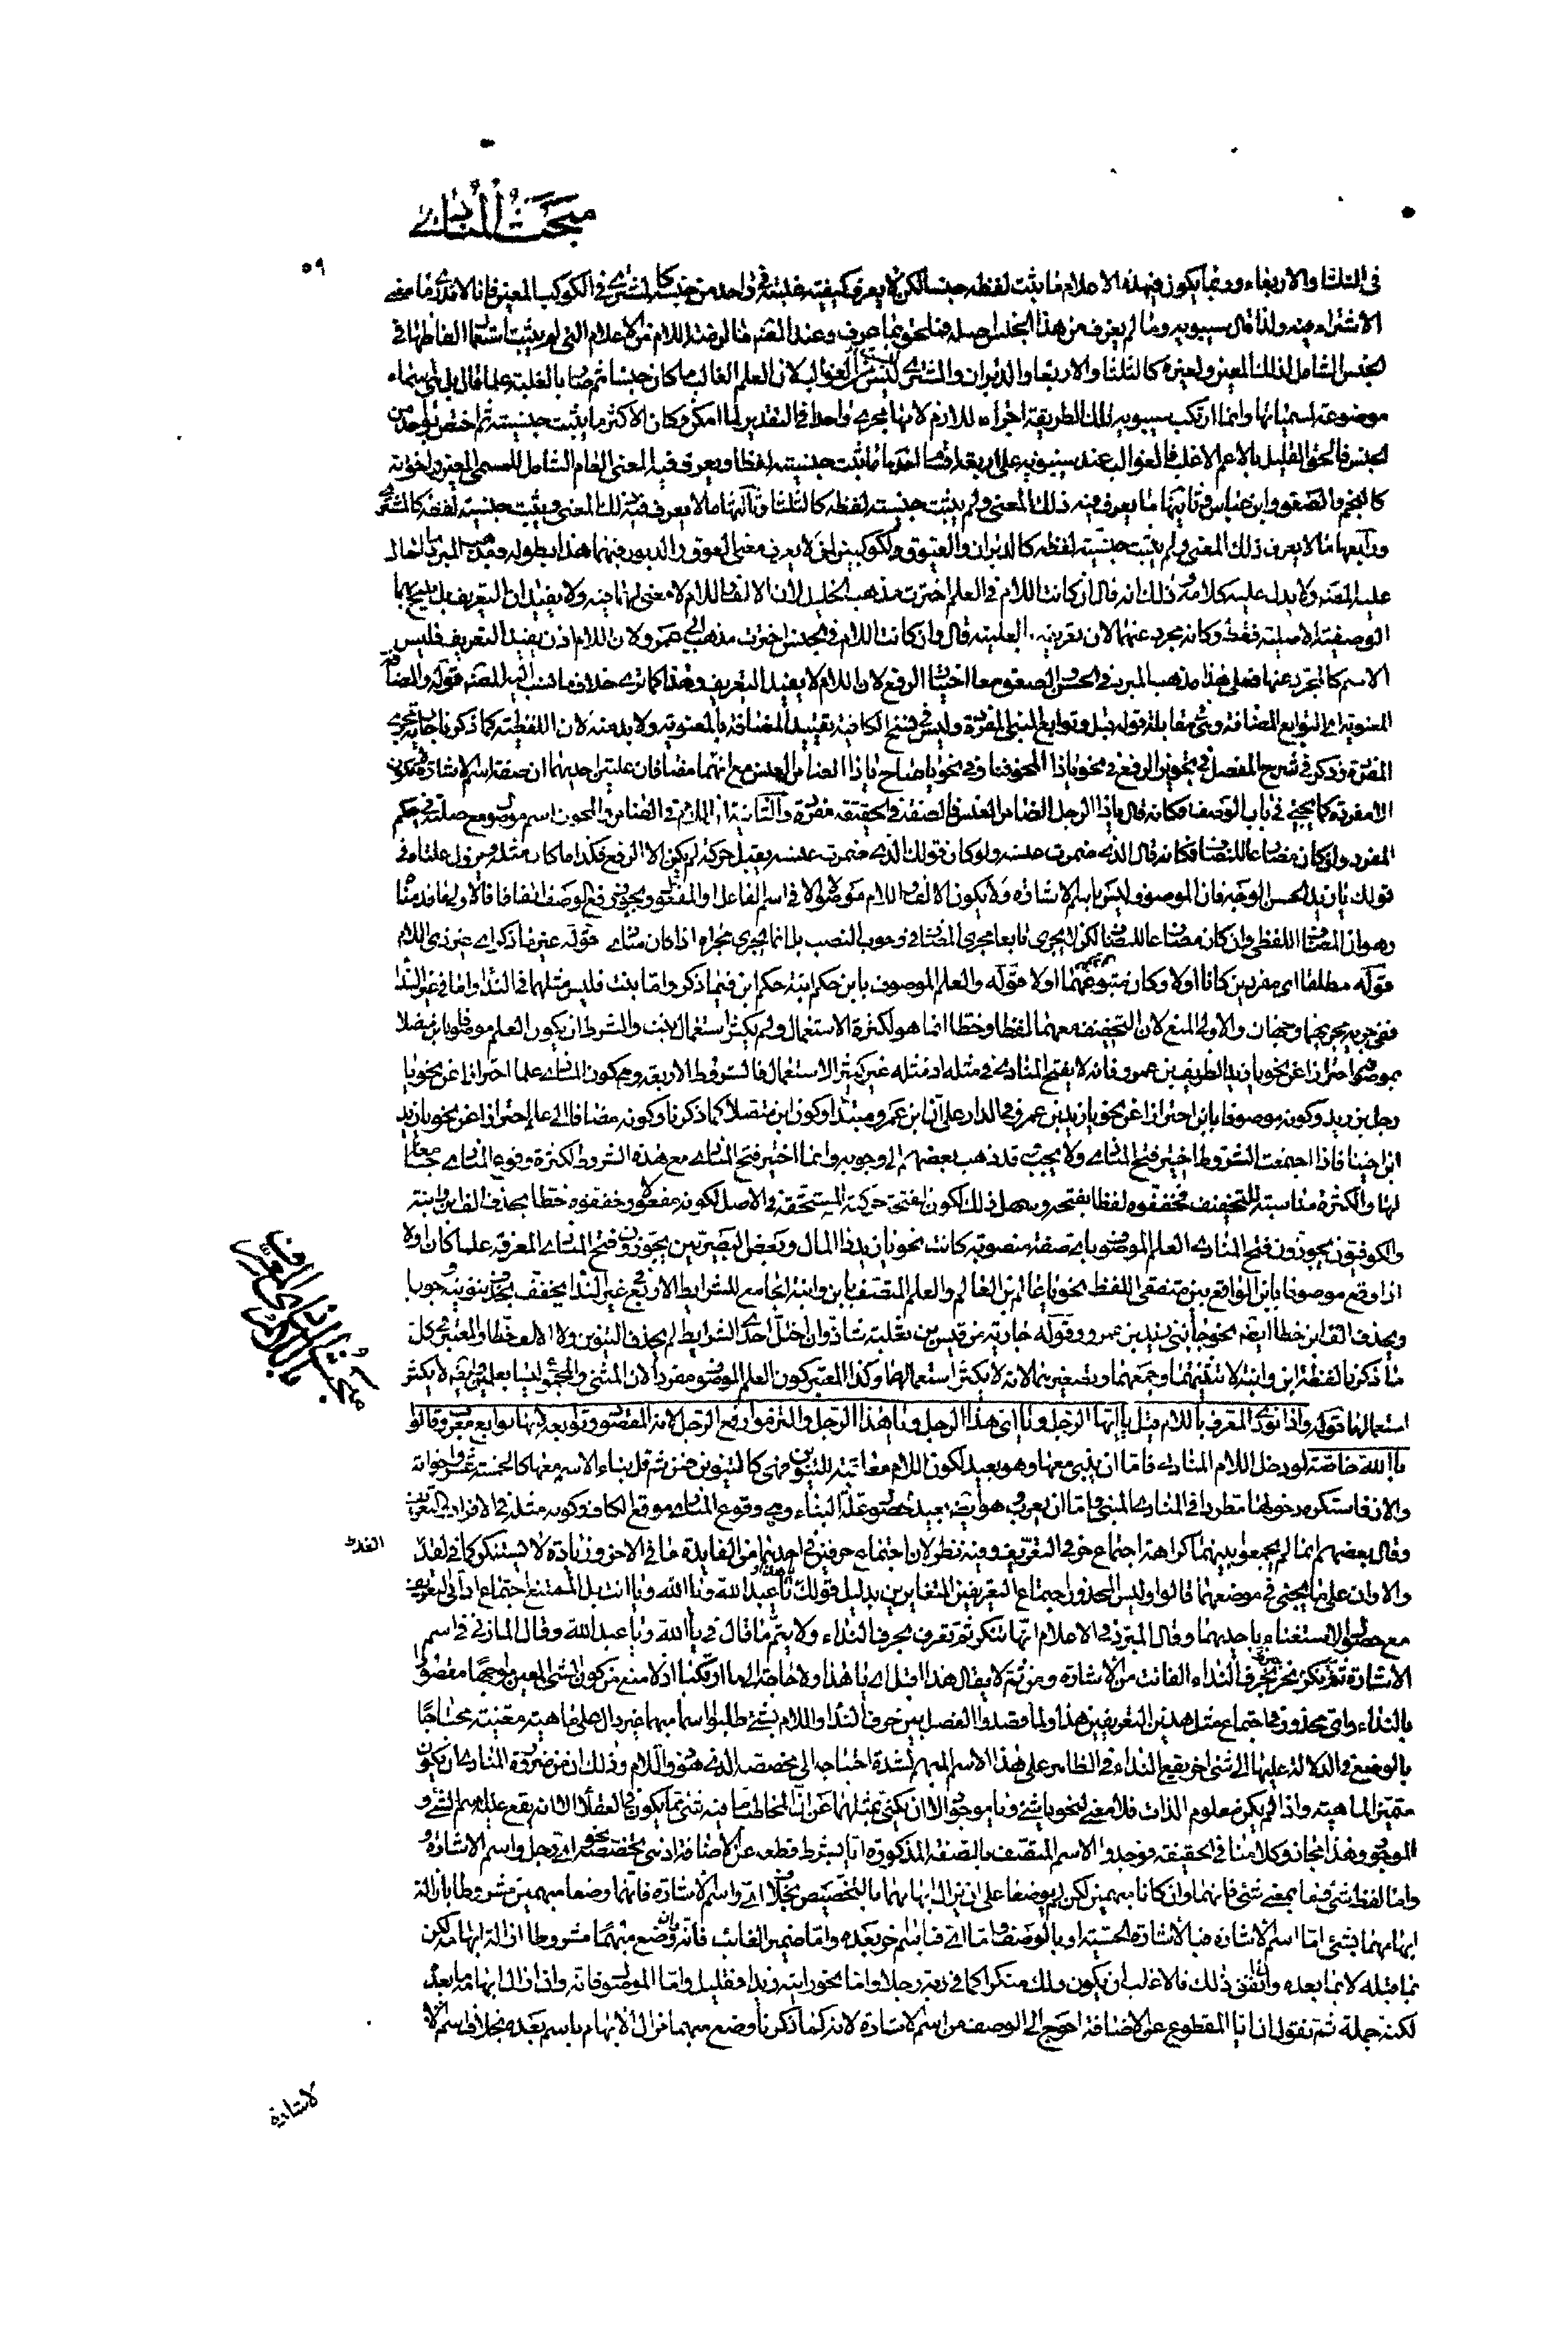 مبحث المنادى
٥٩
فى الثلثا والاربعاء وربما يكون فى هذه الاعلام ما يثبت لفظه جنسا لكن لا يعرف كيفية غلبته فى واحد من جنسه كالمشترى فى الكوكب المعين فانا لا ندرى ما معنى
الاشتراء فيه ولذا قال سيبويه وما لم يعرف من هذا الجنس اصله فملحق بما عرف وعند المصنف ما لزمته اللام من الاعلام التى لم يثبت استعمال الفاظها فى
الجنس الشامل لذلك المعين ولغيره كالثلثا والاربعا والدبران والمشترى ليس من الغوالب لان العلم الغالب ما كان جنسا ثم صار بالغلبة علما قال بل هى اسماء
موضوعة لمسمياتها وانما ارتكب سيبويه تلك الطريقة اجراء للازم لامها مجرى واحدا فى التقدير لما امكن وكان الاكثر ما يثبت جنسيته ثم اختص بواحد من
الجنس فالحق القليل بالاعم الاغلب فالغوالب عند سيبويه على اربعة اقسام احدها ما ثبت جنسيته لفظا ويعرف فيه المعنى العام الشامل للمسمى المعين ولاخوانه
كالنجم والصعق وابن عباس وثانيها ما يعرف فيه ذلك المعنى ولم يثبت جنسية لفظه كالثلثا وثالثها ما لا يعرف فيه ذلك المعنى ويثبت جنسية لفظه كالمشترى
ورابعها ما لا يعرف ذلك المعنى ولم يثبت جنسية لفظه كالدبران والعيوق ولكوكبين اذ لا يعرف معنى العوق والدبور فيهما هذا
عليه المصنف ولا يدل عليه كلامه وذلك انه قال ان كانت اللام فى العلم اخترت مذهب الخليل لان الالف واللام لا معنى لهما فيه ولا يفيدان التعريف بل يلمح بهما
الوصفية الاصلية فقط وكانه مجرد عنهما لان تعريفه بالعلمية قال وان كانت اللام فى الجنس اخترت مذهب ابى عمرو لان اللام اذن يفيد التعريف فليس
الاسم كالمجرد عنها فعلى هذا مذهب المبرد فى الحسن والصعق معا اختيار الرفع لان اللام لا يفيد التعريف وهذا كما ترى خلاف ما نسب اليه المصنف قوله والمضاف
المعنوية اى التوابع المضافة وهى مقابلة قوله قبل وتوابع المبنى المفردة وليس فى نسخ الكافية تقييد المضافة بالمعنوية ولا بد منه لان اللفظية كما ذكرنا جارية مجرى
المفردة وذكر فى شرح المفصل فى تجويز الرفع فى نحو يا ذا المخوفنا وفى نحو يا صاح يا ذا الضامر العنس مع انهما مضافان علتين احديهما ان صفة اسم الاشارة لا تكون
الا مفردة كما يجئ فى باب الوصف فكانه قال يا ذا الرجل الضامر العنس فالصفة فى الحقيقة مفردة والثانية ان اللام فى الضامر والمخوف اسم موصول مع صلته فى حكم
المفرد وان كان مضارعا للمضاف فكانه قال الذى ضمرت عنسه ولو كان قولك الذى ضمرت عنسه يقبل حركة لم يكن الا الرفع فكذا ما كان مثله
قولك يا زيد الحسن الوجه فان الموصوف ليس باسم الاشارة ولا يكون الالف واللام موصولا الا فى اسم الفاعل او المفعول
وهو ان المضاف اللفظى وان كان مضارعا للمضاف لكن لا يجرى تابعا مجرى المضاف فى وجوب النصب بل انما يجرى مجراه اذا كان منادى قوله غير ما ذكر اى غير ذى اللام
قوله مطلقا اى مفردين كانا اولا وكان متبوعهما اولا قوله والعلم الموصوف بابن حكم ابنة حكم ابن فيما ذكر واما بنت فليس مثلهما فى النداء واما فى غير النداء
ففى جريه مجريهما وجهان والاولى المنع لان التخفيف معهما لفظا وخطا انما هو لكثرة الاستعمال ولم يكثر استعمال بنت والشرط ان يكون العلم موصوفا بابن متصلا
بموصوفه احترازا عن نحو يا زيد الظريف بن عمرو فانه لا يفتح المنادى فى مثله اذ مثله غير كثير الاستعمال فالشروط الاربعة وهى كون المنادى علما احترازا عن نحو يا
رجل بن زيد وكونه موصوفا بابن احترازا عن نحو يا زيد بن عمرو فى الدار على ان ابن عمرو مبتدا وكون ابن متصلا كما ذكرنا وكونه مضافا الى علم احترازا عن نحو يا زيد
ابن اخينا فاذا اجتمعت الشروط اختير فتح المنادى ولا يجب وقد ذهب بعضهم الى وجوبه وانما اختير فتح المنادى مع هذه الشروط لكثرة وقوع المنادى جامعا
لها والكثرة مناسبة للتخفيف فخففوه لفظا بفتحه وسهل ذلك لكون الفتحة حركته المستحقة فى الاصل لكونه مفعولا وخففوه خطا بحذف الف ابن وابنة
والكوفيون يجوزون فتح المنادى العلم الموصوف باى صفة منصوبة كانت نحو يا زيد ذا المال وبعض البصريين يجوزون فتح المنادى المعرفة علما كان اولا
اذا وقع موصوفا بابن الواقع بين متفقى اللفظ نحو يا عالم بن العالم والعلم المتصف بابن وابنة الجامع للشرايط الاربع فى غير النداء يخفف بحذف تنوينه وجوبا
ويحذف الف ابن خطا ايضا نحو جاءنى زيد بن عمرو وقوله جارية من قيس بن ثعلبة شاذ وان اختل احدى الشرايط لم يحذف التنوين ولا الالف خطا والمعتبر فى كل
ما ذكرنا لفظة ابن وابنة لا تثنيتهما وجمعهما وتصغيرهما لانه لا يكثر استعمالها وكذا المعتبر كون العلم الموصوف مفردا لان المثنى والمجموع ليسا بعلمين
استعمالها قوله واذا نودى المعرف باللام قيل يا ايها الرجل ويا اى هذا الرجل ويا هذا الرجل والتزموا رفع الرجل لانه المقصود وتوابعه لانها توابع معرب وقالوا
يا الله خاصة لو دخل اللام المنادى فاما ان يبنى معها وهو بعيد لكون اللام معاقبة للتنوين فهى كالتنوين فمن ثم قل بناء الاسم معها كالخمسة عشر واخواته
والآن فاستكره دخولها مطردا فى المنادى المبنى واما ان يعرب وهو ايضا بعيد لحصول علة البناء وهى وقوع المنادى موقع الكاف وكونه مثله فى الافراد والتعريف
وقال بعضهم انما لم يجمع بينهما كراهة اجتماع حرفى التعريف وفيه نظر لان اجتماع حرفين فى احديهما من الفايدة ما فى الاخر وزيادة لا يستنكر كما فى لقد
والا وان على ما يجئ فى موضعهما قالوا وليس المحذور اجتماع التعريفين المتغايرين بدليل قولك يا هذا ويا عبد الله ويا الله ويا انت بل الممتنع اجتماع اداتى التعريف
مع حصول الاستغناء باحديهما وقال المبرد فى الاعلام انها تنكر ثم تعرف بحرف النداء ولا يتم ما قال فى يا الله ويا عبد الله وقال المازنى فى اسم
الاشارة حرف النداء الفائت من الاشارة ومن ثم لا يقال هذا اقبل اى يا هذا ولا حاجة الى ما ارتكبا اذ لا منع من كون الشئ المعين مواجها مقصودا
بالنداء واى محذور فى اجتماع مثل هذين التعريفين هذا ولما قصدوا الفصل بين حرف النداء واللام بشئ طلبوا اسما مبهما غير دال على ماهية معينة محتاجا
بالوضع فى الدلالة عليها الى شئ اخر يقع النداء فى الظاهر على هذا الاسم المبهم لشدة احتياجه الى مخصصه الذى هو ذو اللام وذلك ان من ضرورة المنادى ان يكون
متميز الماهية واذا لم يكن معلوم الذات فلا معنى لنحو يا شئ ويا موجود
الموجود وهذا مجاز وكلامنا فى الحقيقة فوجدوا الاسم المتصف بالصفة المذكورة ايا بشرط قطعه عن الاضافة اذ هى تخصصه نحو اى رجل واسم الاشارة
واما لفظ شئ وما بمعنى شئ فانهما وان كانا مبهمين لكن لم يوضعا على ان يزال ابهامهما بالتخصيص بخلاف اى واسم الاشارة فانهما وضعا مبهمين مشروطا بازالة
ابهامهما بشئ اما اسم الاشارة فبالاشارة الحسية او بالوصف واما اى فباسم اخر بعده واما ضمير الغائب فانه وان وضع مبهما مشروطا ازالة ابهامه لكن
بما قبله لا بما بعده واتفق ذلك فالاغلب ان يكون ذلك منكرا كما فى ربه رجلا واما نحو رايته زيدا فقليل واما الموصول فانه وان ازال ابهامه ما بعده
لكنه جملة ثم نقول ان ايا المقطوع عن الاضافة احوج الى الوصف من اسم الاشارة لانه كما ذكرنا وضع مبهما مزال الابهام باسم بعده بخلاف اسم الا
مبحث المنادى المعرف باللام
لاشارة